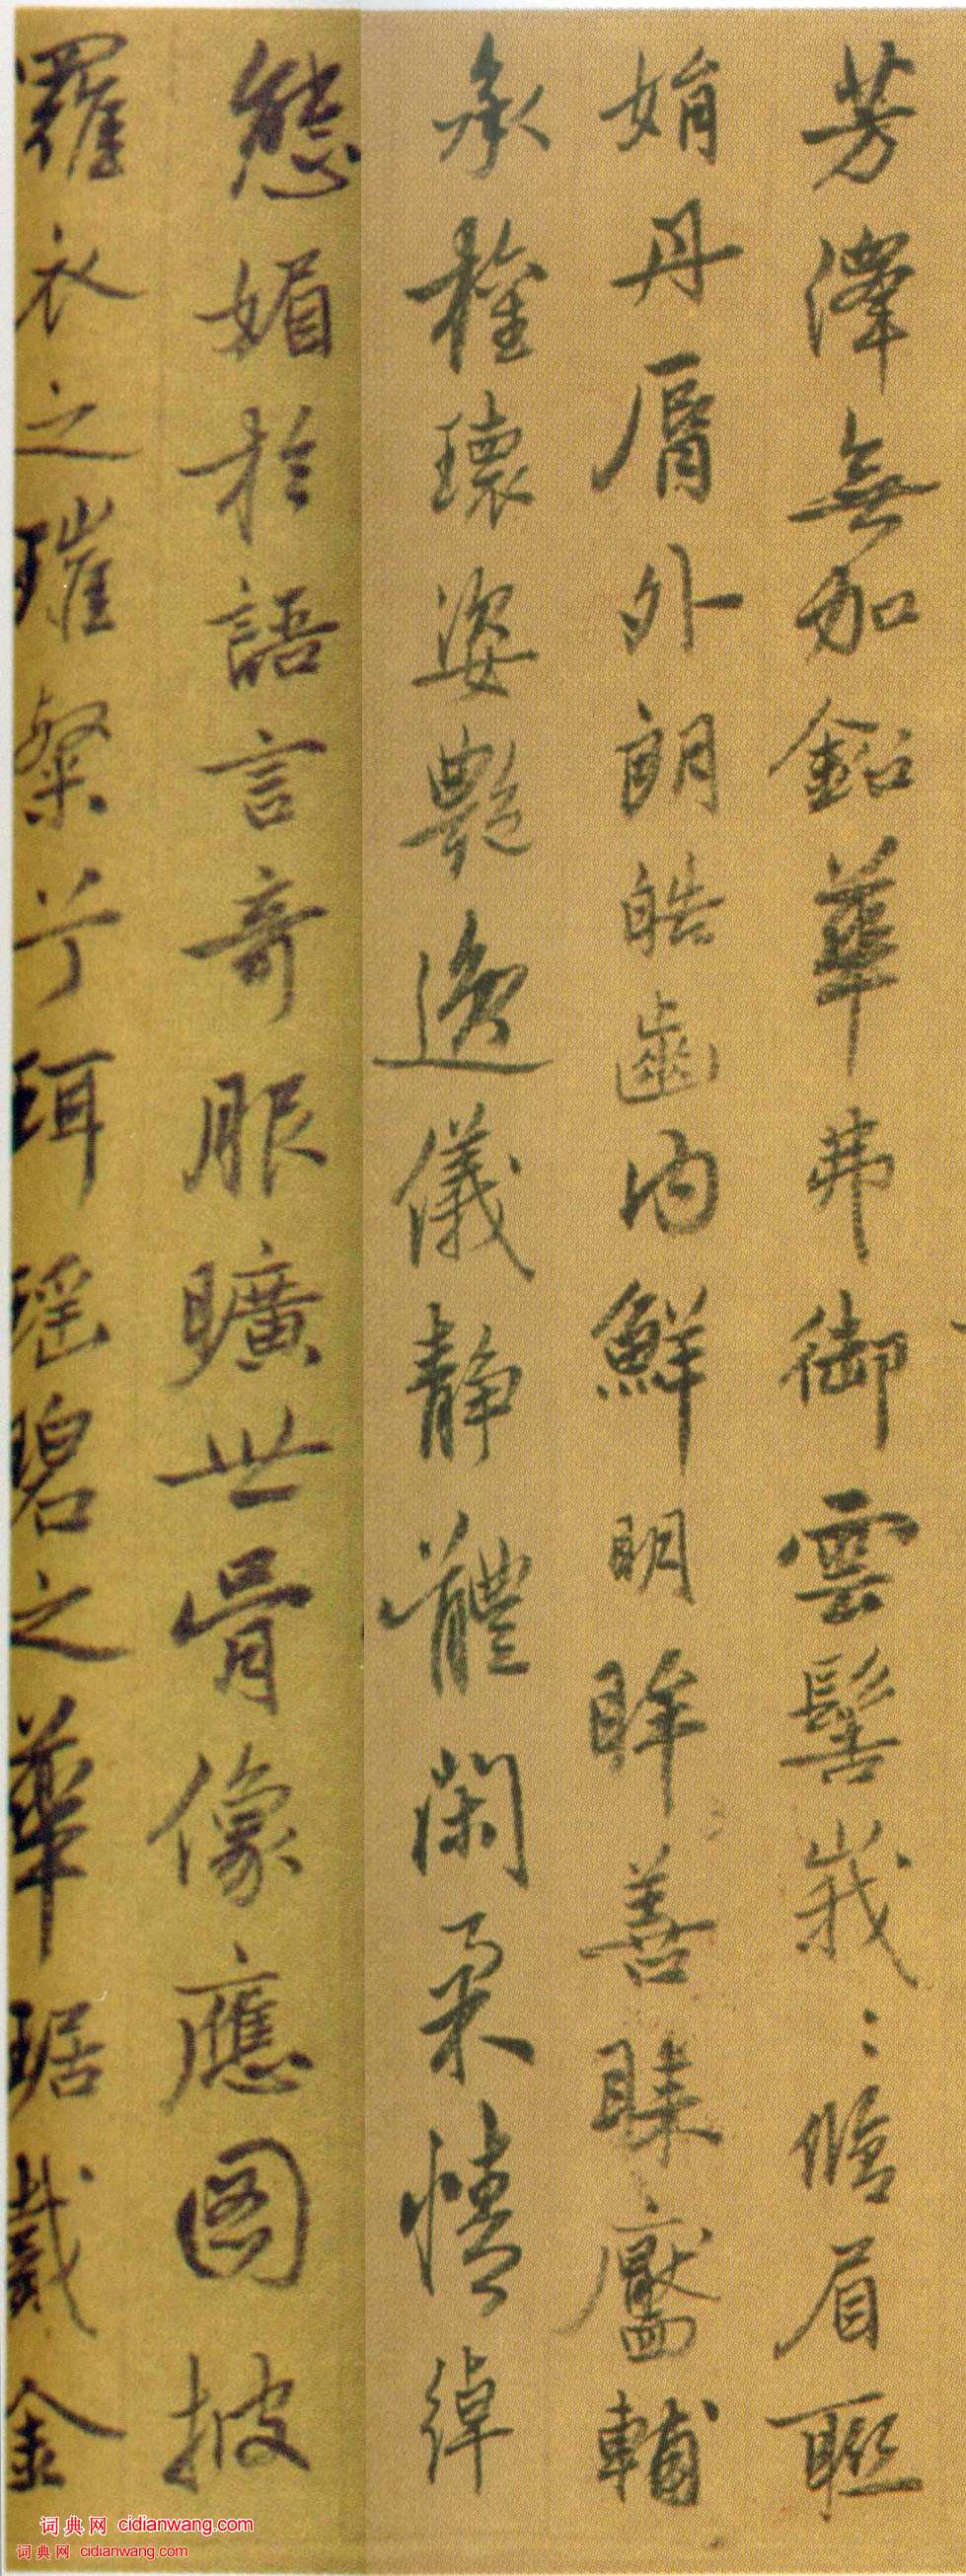 芳澤無加鉛華弗御雲髻峩〻脩眉聯
娟丹脣外朗皓齒内鮮明眸善睞靨輔
承權瓌姿艶逸儀静體閑柔情綽
態媚於語言奇服曠世骨像應圖披
羅衣之璀粲兮珥瑶碧之華琚戴金
词典网 cidianwang.com
词典网 cidianwang.com